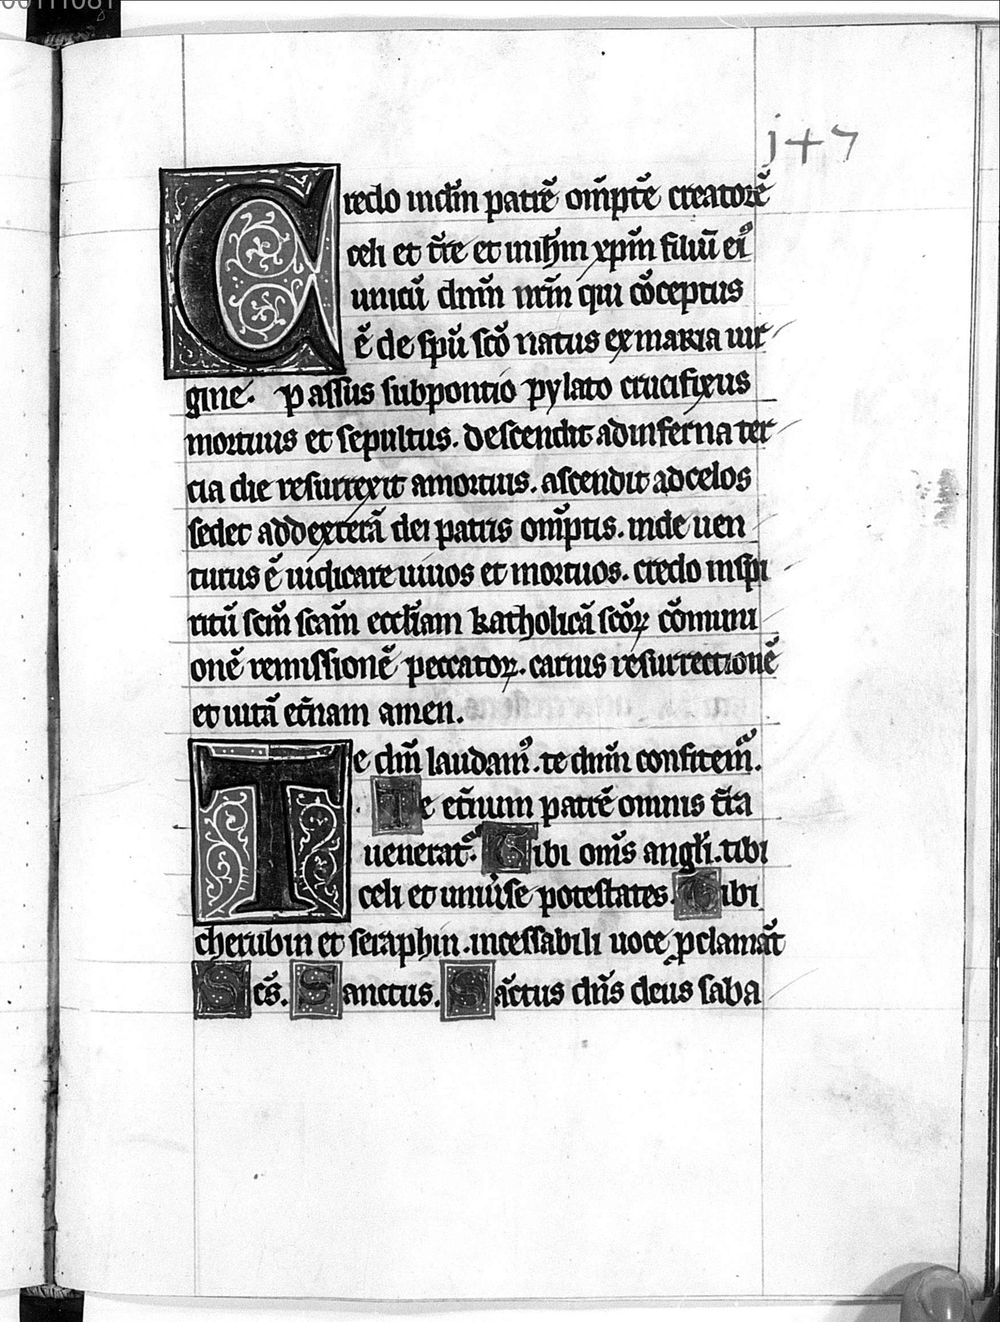 00111081
j47
Credo in dm̄ patrē om̄ptē creatorē
celi et t̄re et in ih̄m xp̄m filiū eiꝰ
unicū dn̄m nr̄m qui cōceptus
ē de sp̄u scō natus ex maria uir
gine. Passus sub pontio pylato crucifixus
mortuus et sepultus. descendit ad inferna ter
cia die resurrexit a mortuis. ascendit ad celos
sedet ad dexterā dei patris om̄ptis. inde uen
turus ē iudicare uiuos et mortuos. credo in spi
ritū scm̄ scam̄ eccl̄iam katholicā scōꝝ cōmuni
onē remissionē peccatoꝝ. carnis resurrectionē
et uitā et̄nam amen.
Te dm̄ laudamꝰ. te dn̄m confitemꝰ.
Te et̄num patrē omnis t̄ra
uenerat᷑. Tibi om̄s angl̄i. tibi
celi et uniu̾se potestates. Tibi
cherubin et seraphin. incessabili uoce ꝓclamāt
Sc̄s. Sanctus. Sāctus dn̄s deus saba